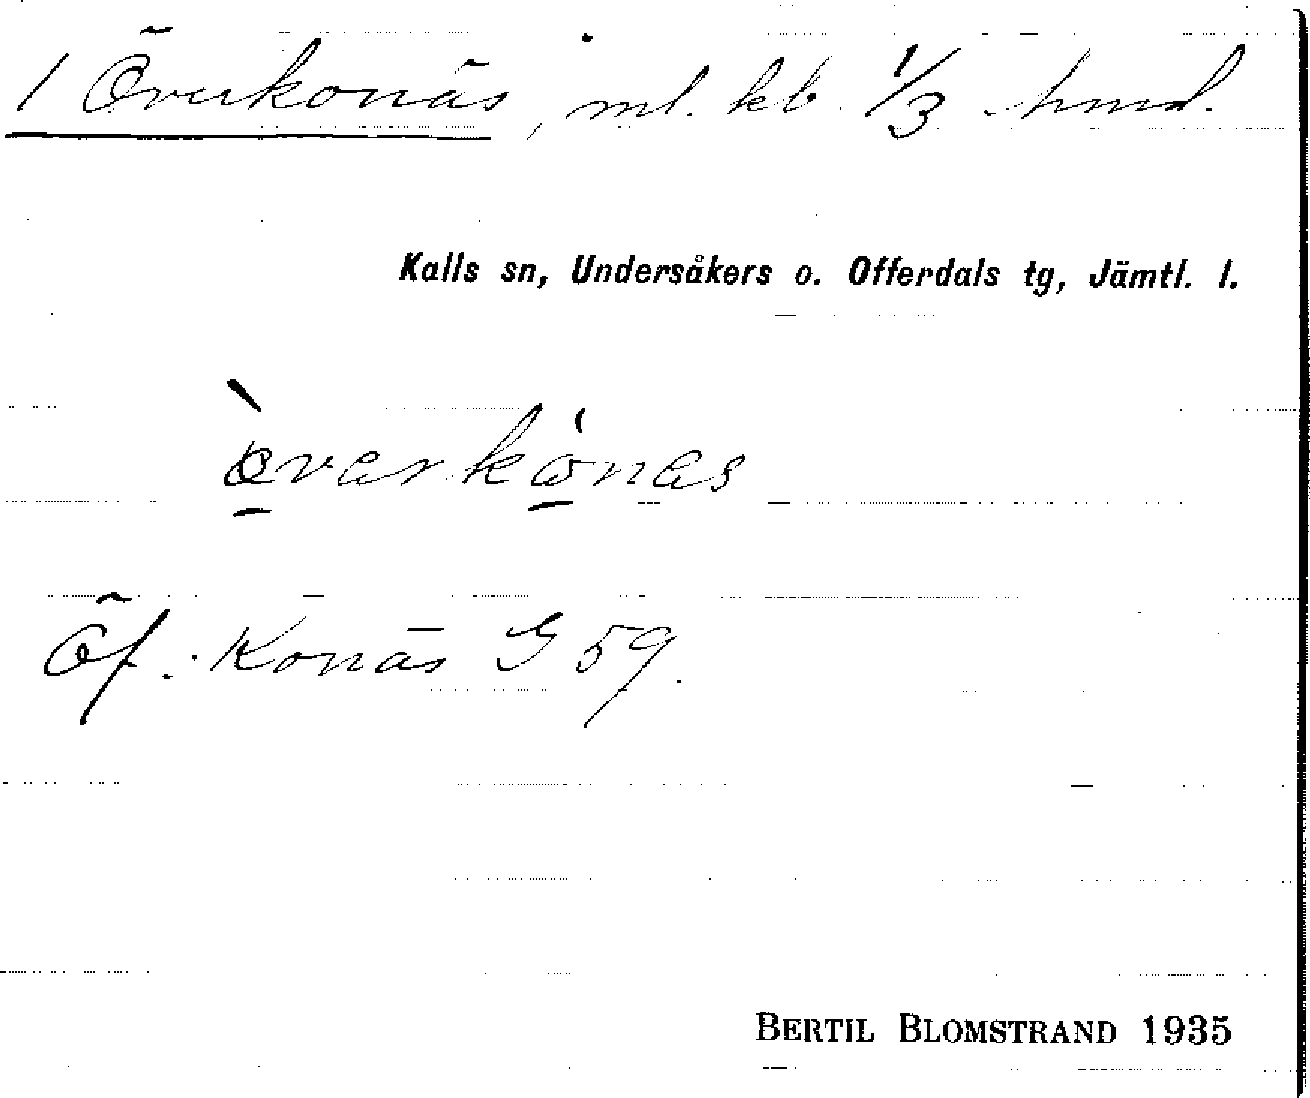 1 Överkonäs, ml. kb. 1/3 hmd.
Kalls sn, Undersåkers o. Offerdals tg, Jämtl. l.
Öf. Konäs G 59.
BERTIL BLOMSTRAND 1935